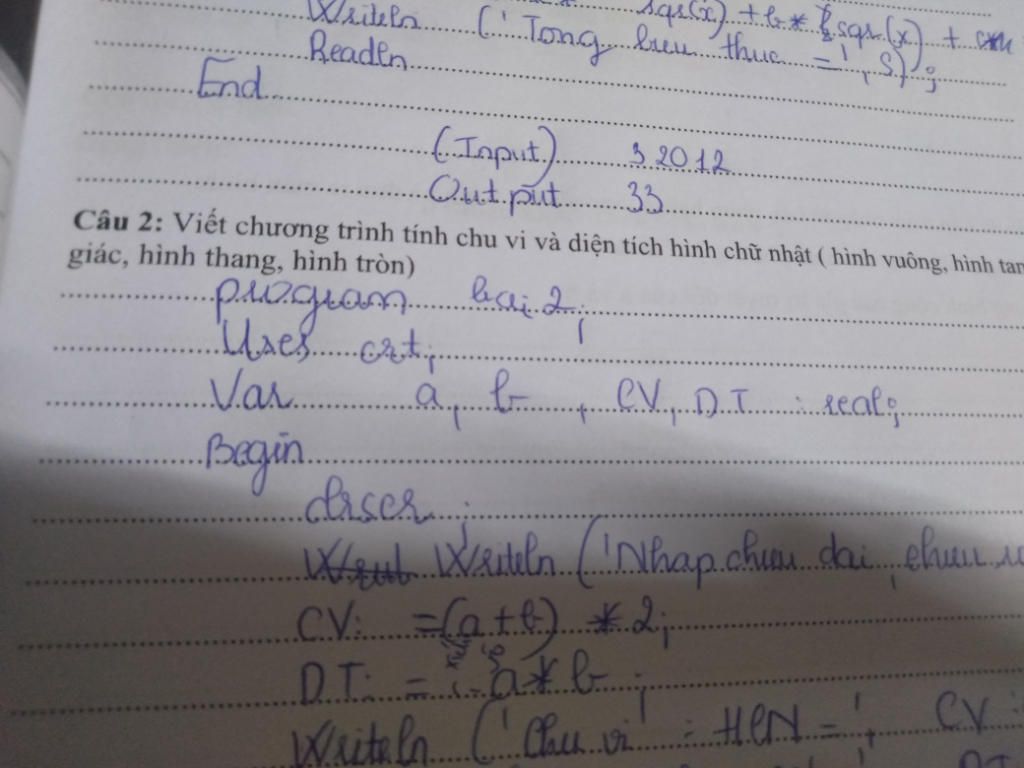 Writeln sqr(x) + b * sqr(x) +
Readln ('Tong bieu thuc =', S);
End
(Input) 3 20 12
Output 33
Câu 2: Viết chương trình tính chu vi và diện tích hình chữ nhật ( hình vuông, hình tam
giác, hình thang, hình tròn)
program bai 2;
Uses crt;
Var a, b , CV, DT : real;
Begin
clrscr ;
Writeln ('Nhap chieu dai, chieu
CV: =(a+b) * 2;
DT: = a*b ;
Writeln ('Chu vi' : HCN =', CV
DT